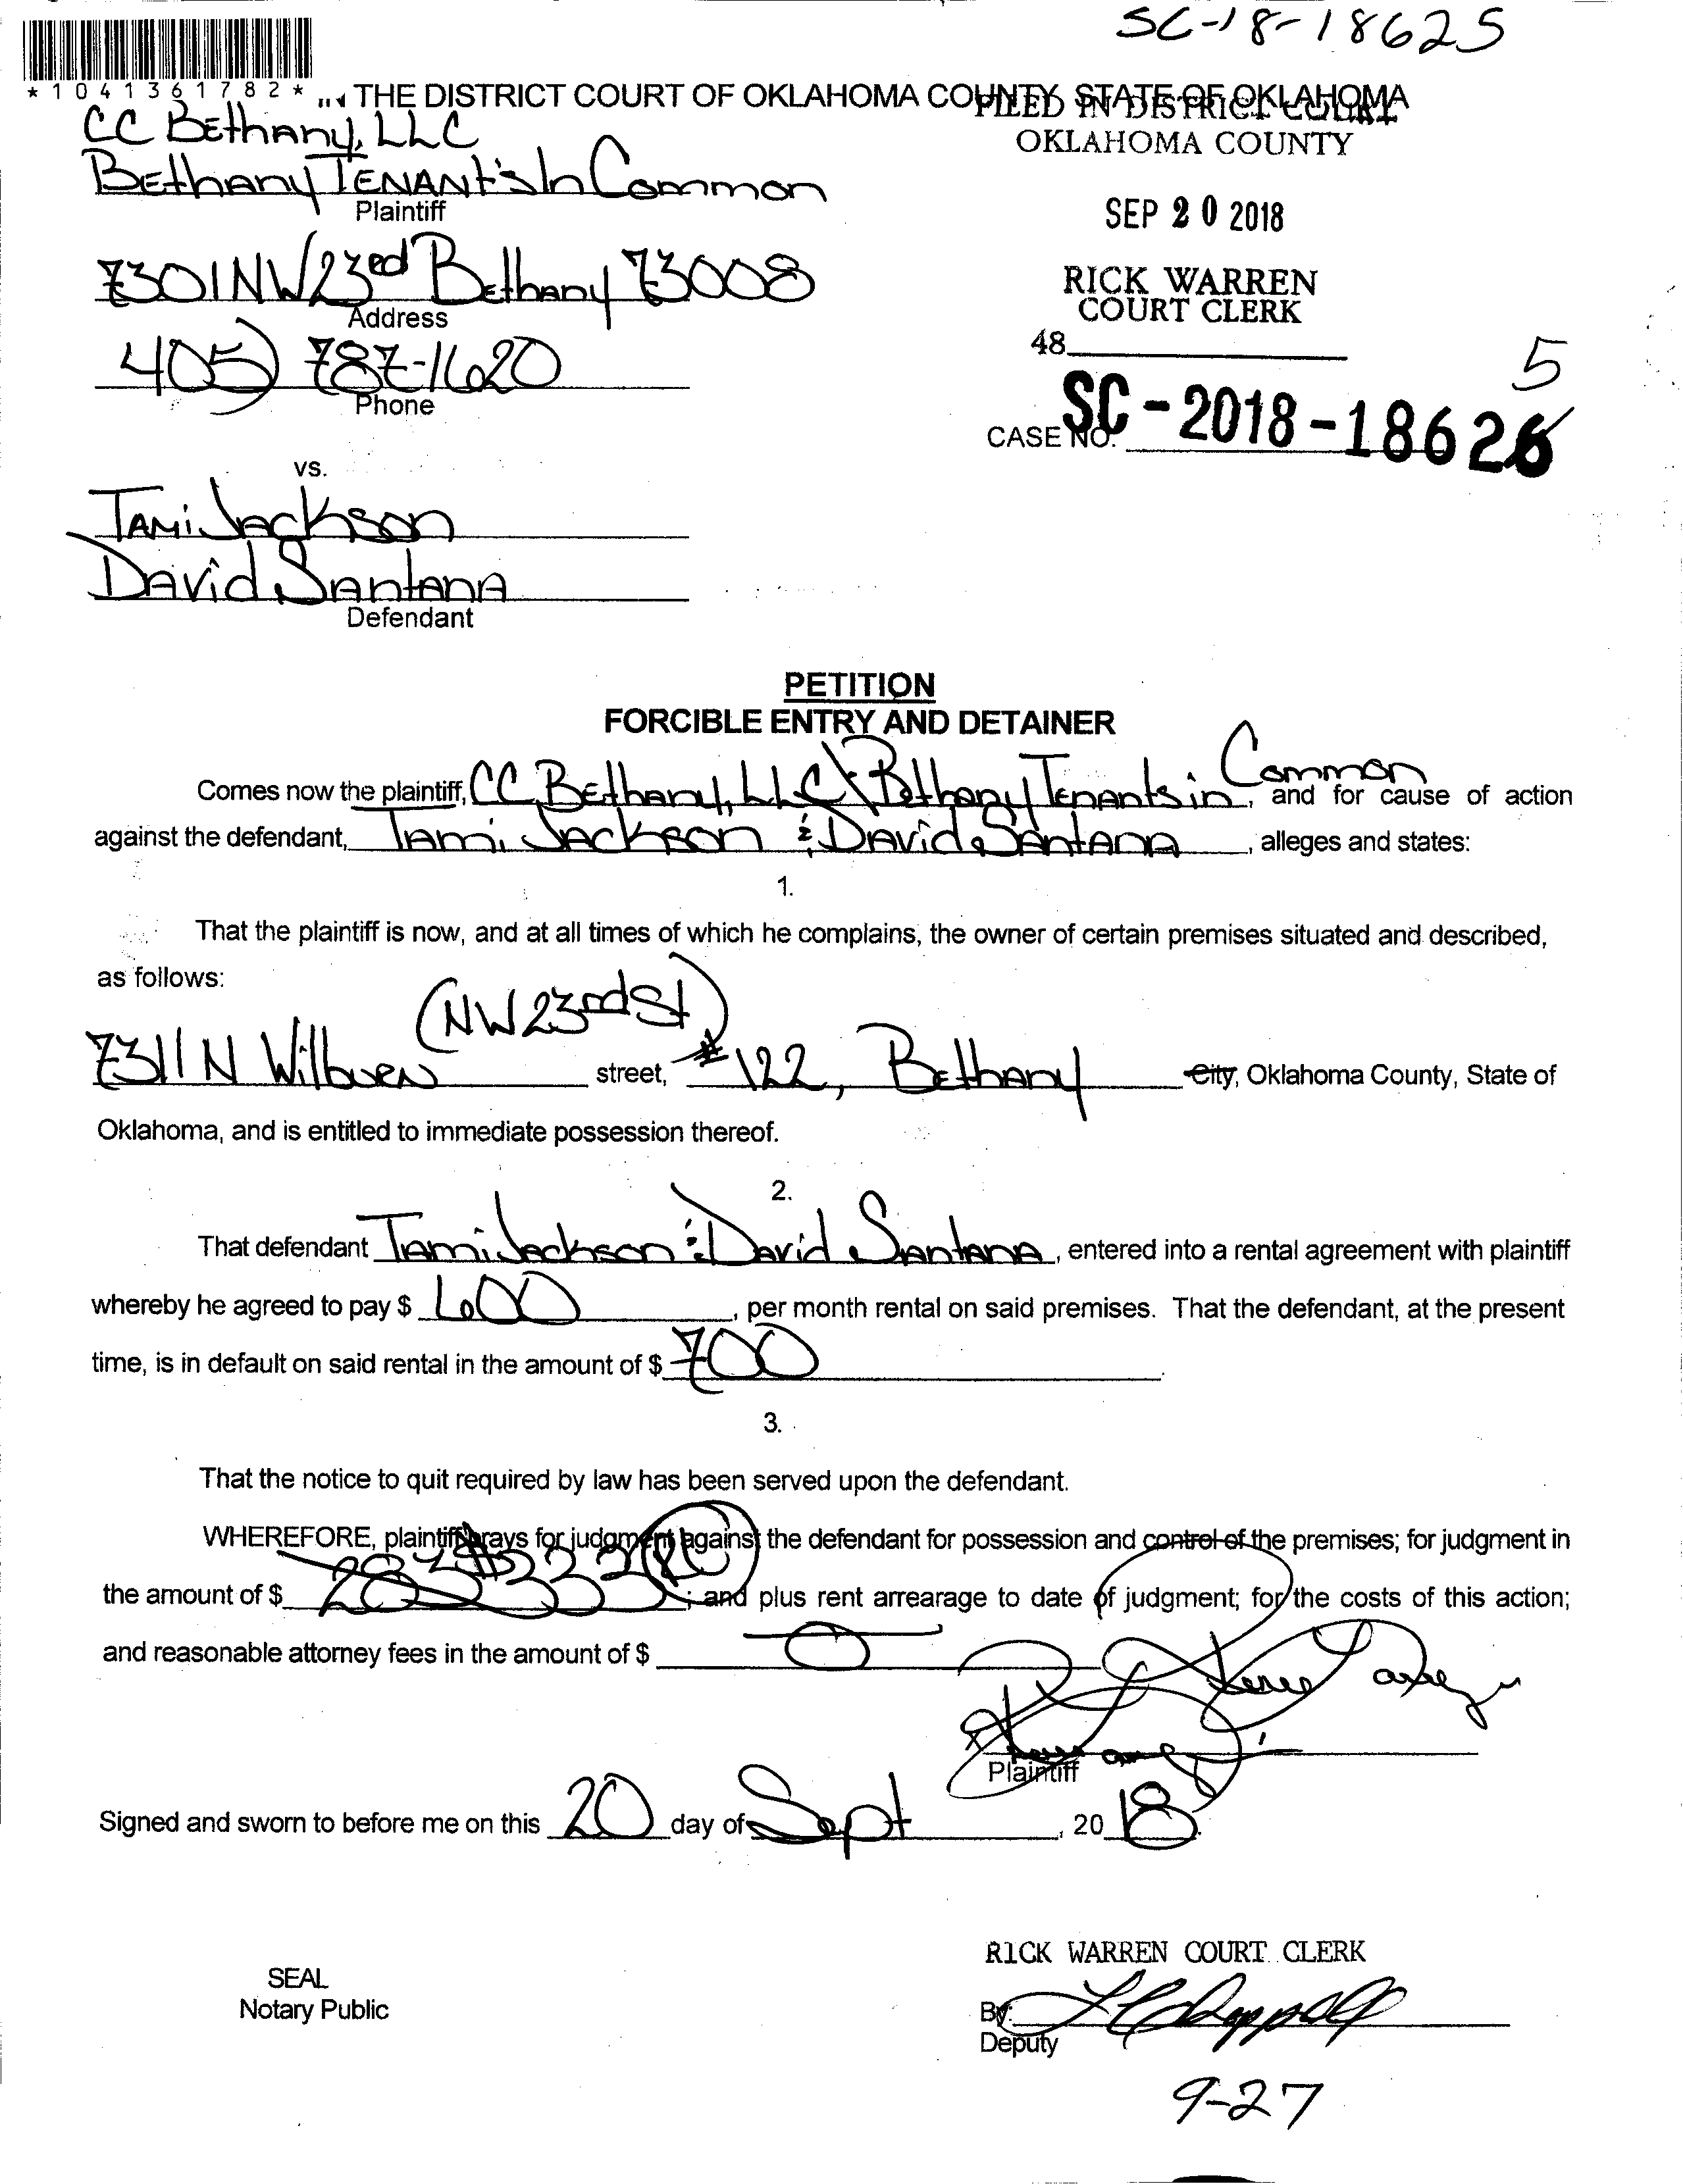 SC-18-18625
*1041361782*
IN THE DISTRICT COURT OF OKLAHOMA COUNTY, STATE OF OKLAHOMA
FILED IN DISTRICT COURT
OKLAHOMA COUNTY
CC Bethany, LLC
Bethany Tenant's In Common
Plaintiff
SEP 20 2018
7301 NW 23rd Bethany 73008
Address
RICK WARREN
COURT CLERK
405) 787-1620
Phone
48
5
CASE NO. SC-2018-18626
vs.
Tami Jackson
David Santana
Defendant
PETITION
FORCIBLE ENTRY AND DETAINER
Comes now the plaintiff, CC Bethany, LLC \ Bethany Tenants in Common, and for cause of action
against the defendant, Tami Jackson & David Santana, alleges and states:
1.
That the plaintiff is now, and at all times of which he complains, the owner of certain premises situated and described,
as follows:
(NW 23rd St)
7311 N Wilburn street, #122, Bethany City, Oklahoma County, State of
Oklahoma, and is entitled to immediate possession thereof.
2.
That defendant Tami Jackson & David Santana, entered into a rental agreement with plaintiff
whereby he agreed to pay $ 600, per month rental on said premises. That the defendant, at the present
time, is in default on said rental in the amount of $ 700.
3.
That the notice to quit required by law has been served upon the defendant.
WHEREFORE, plaintiff prays for judgment against the defendant for possession and control of the premises; for judgment in
the amount of $ ; and plus rent arrearage to date of judgment; for the costs of this action;
and reasonable attorney fees in the amount of $ 0
Plaintiff
Signed and sworn to before me on this 20 day of Sept, 2018.
RICK WARREN COURT CLERK
SEAL
Notary Public
By:
Deputy
9-27